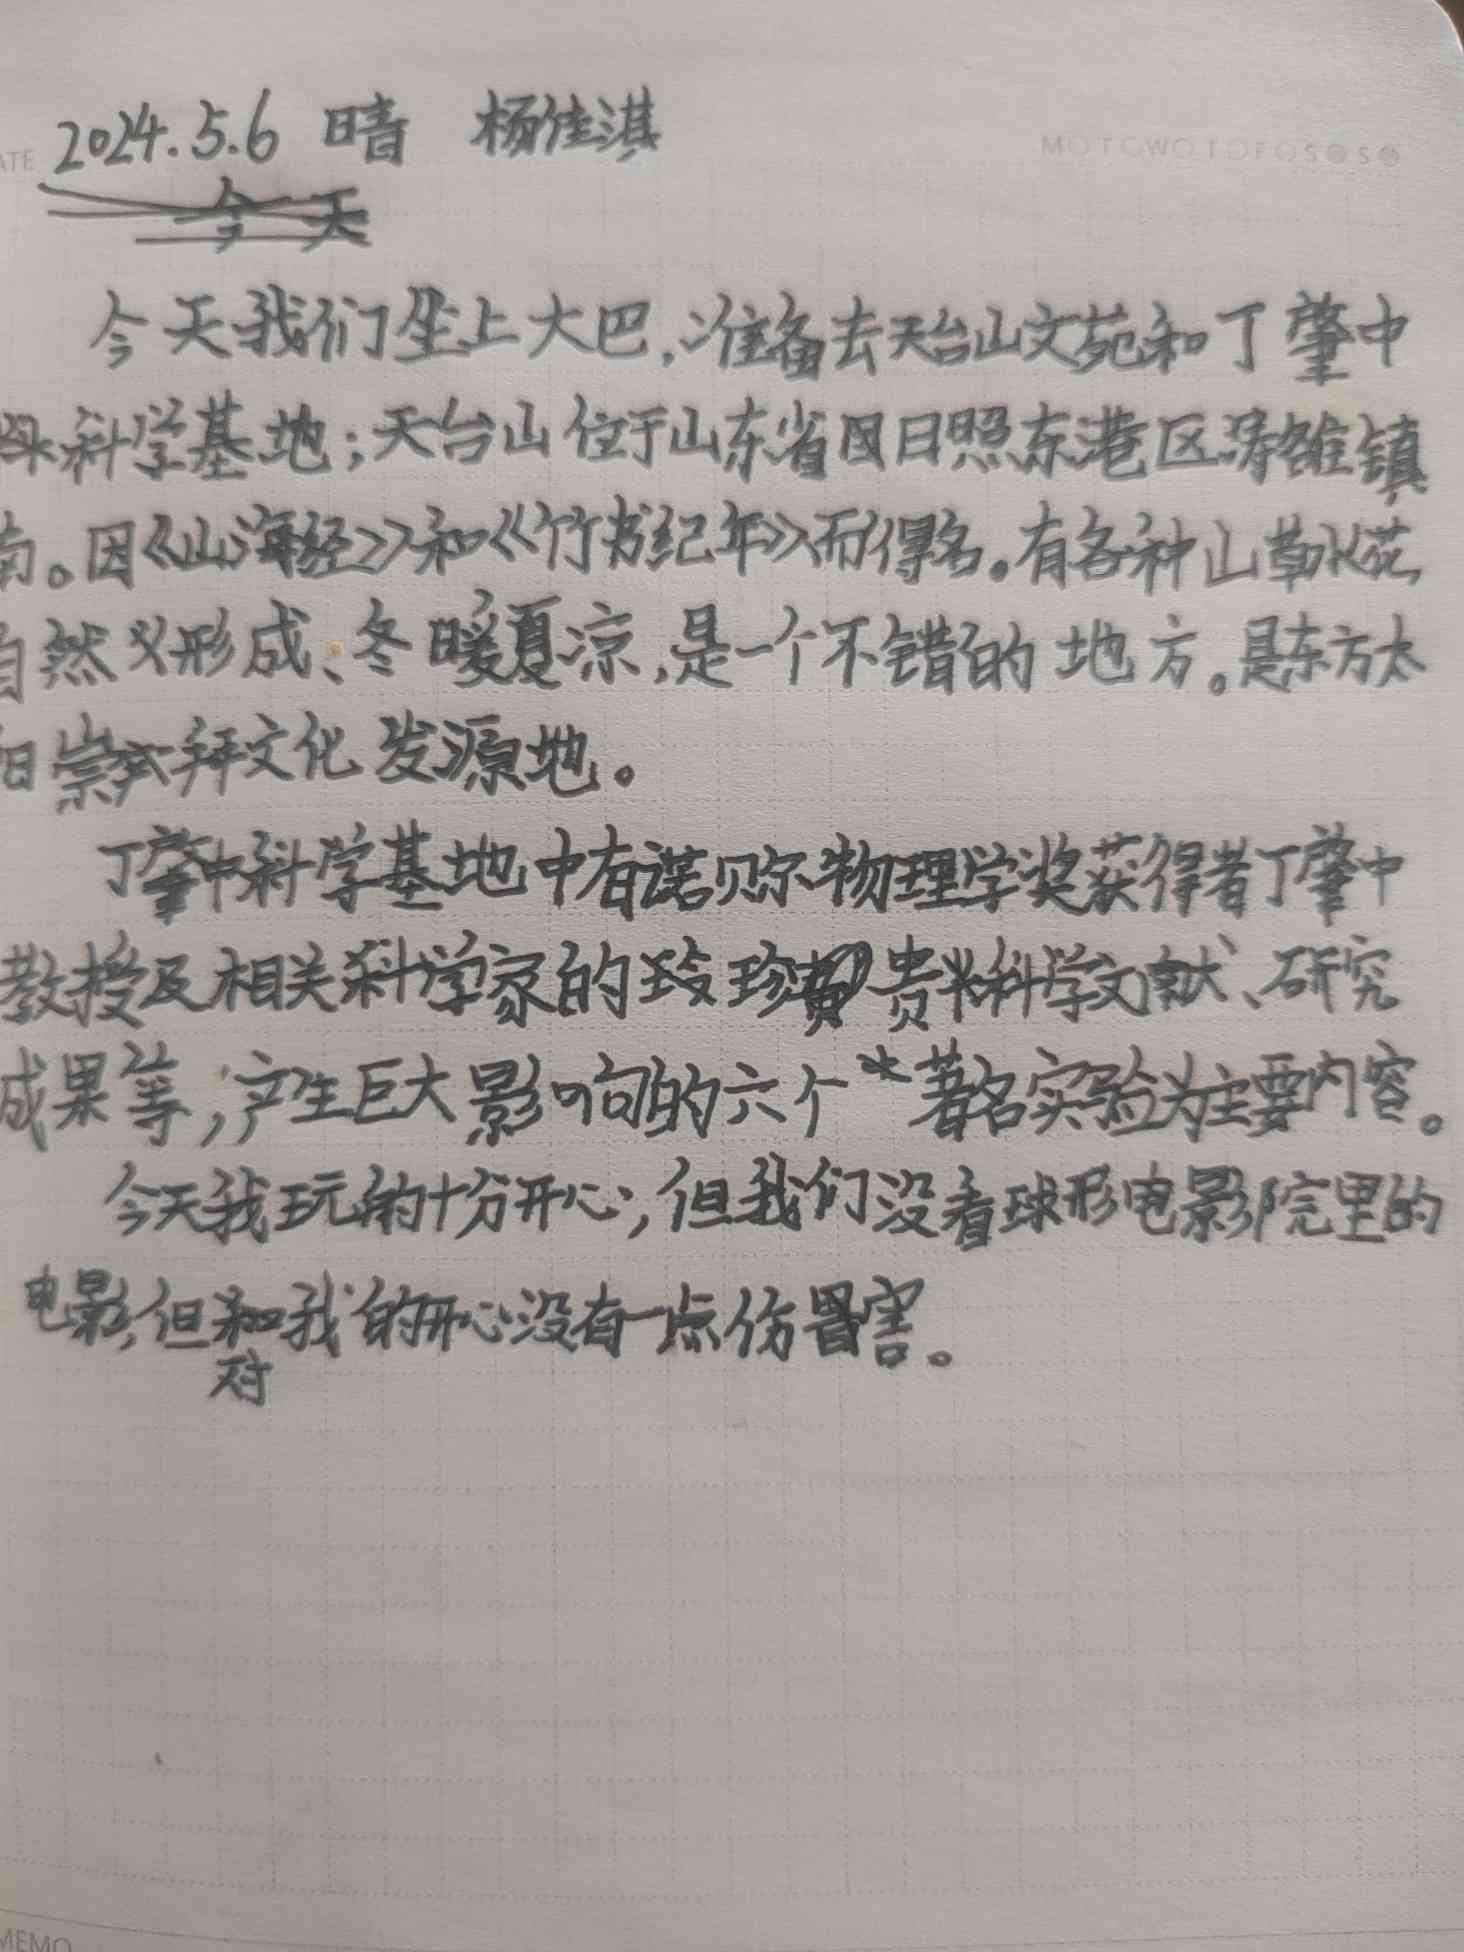 2024.5.6 暗 杨佳淇
MO TO WO TO FO SO SO
今天
今天我们坐上大巴,准备去天台山文苑和丁肇中
科学基地;天台山位于山东省日照东港区涛雒镇
南。因《山海经》和《竹书纪年》而得名。有各种山草水花
自然义形成、冬暖夏凉,是一个不错的地方。是东方太
阳崇拜文化发源地。
丁肇中科学基地中有诺贝尔物理学奖获得者丁肇中
教授及相关科学家的珍贵科学文献、研究
成果等,产生巨大影响的六个著名实验为主要内容。
今天我玩的十分开心;但我们没看球形电影院里的
电影,但和我的开心没有一点伤害。
对
MEMO